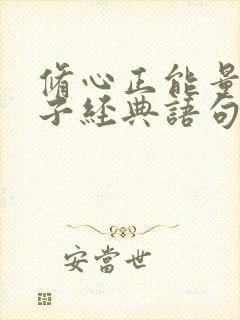 脩心正能量
子經典語句
安當世